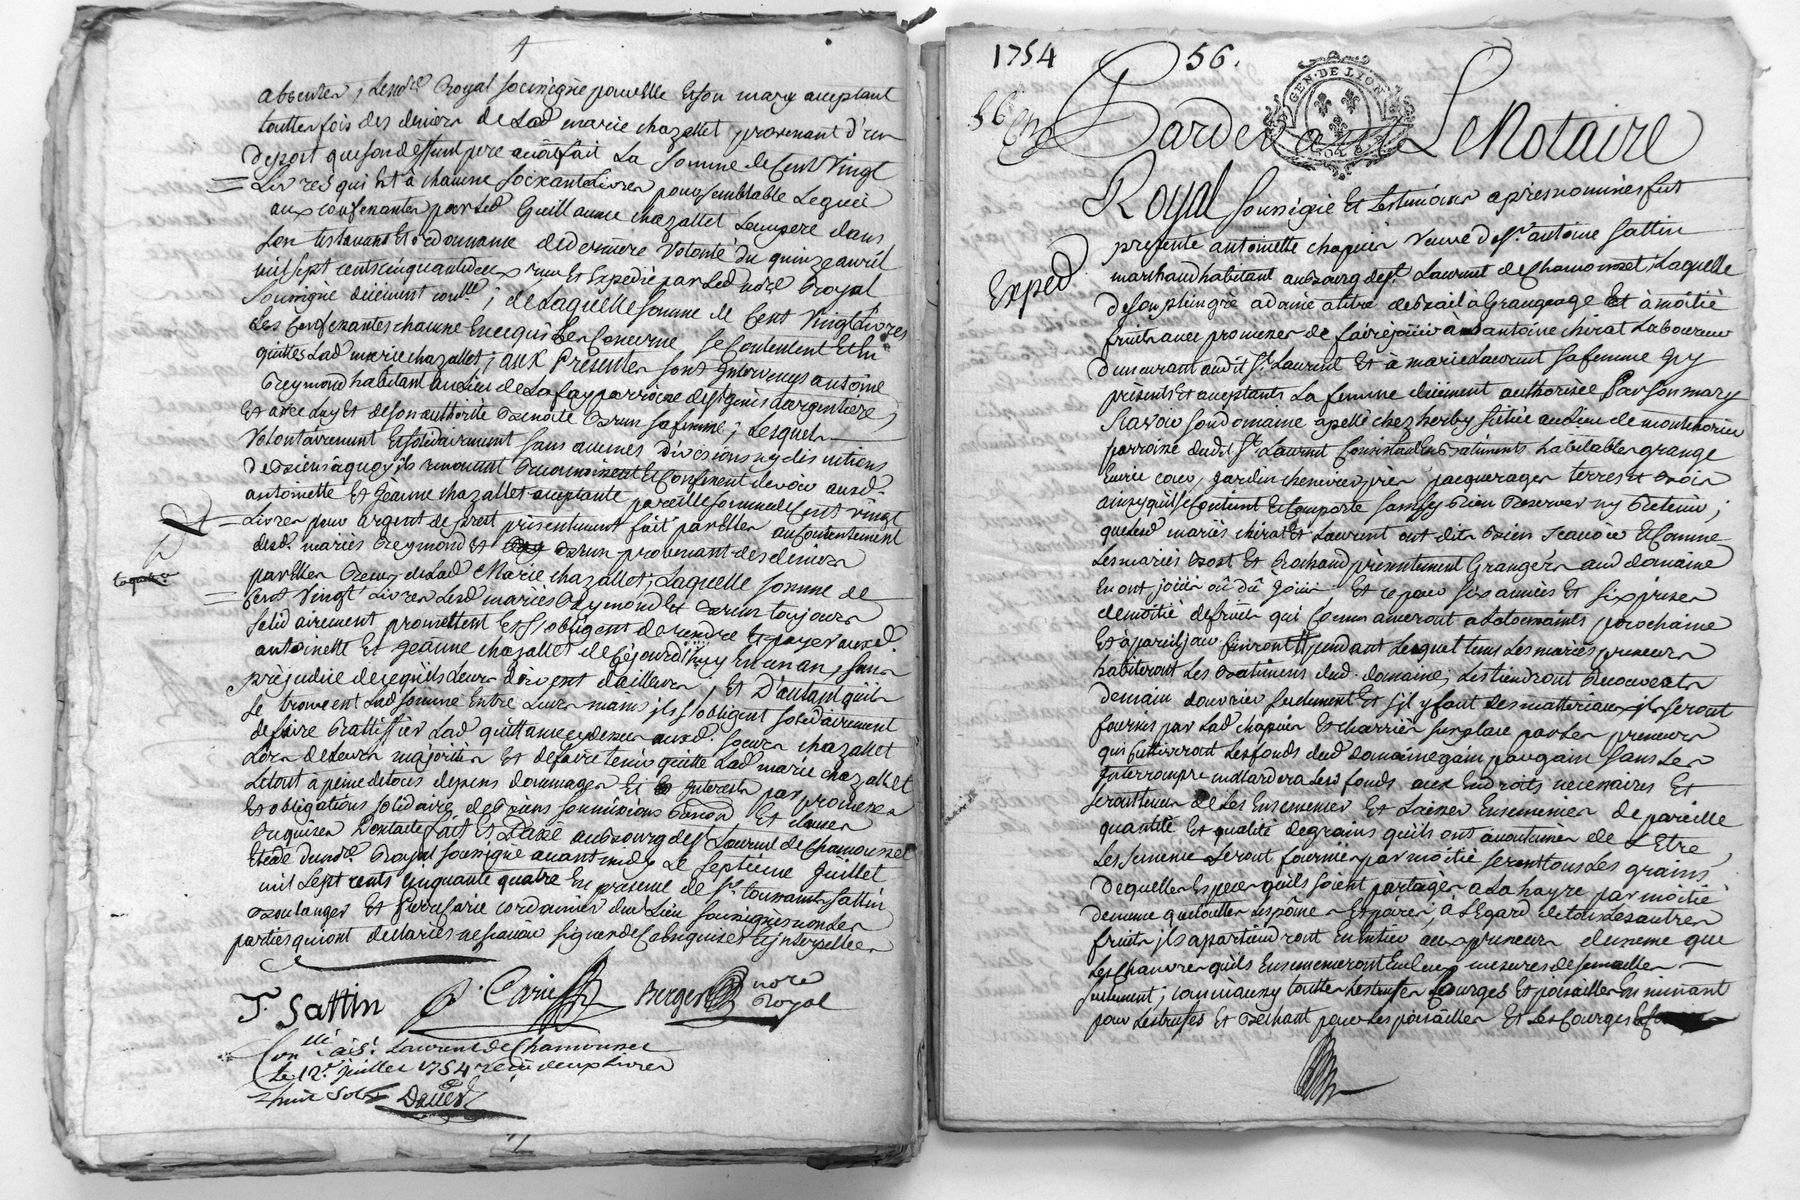 absenter, Led. Royal soussigné pour elle et son mary acceptant
touttes fois des deniers de Lad marie chazallet provenant d'un
depost que son deffunt pere avoit fait La somme de Cent Vingt
Livres qui Est à chacune soixante Livres pour semblable Leguée
aux confesantes par Led Guillaume chazallet Leur pere dans
son testament Et ordonnance de derniere Volonté du quinze avril
mil sept cents cinquante deux reçu Et Expedié par Led note Royal
soussigné ; de Laquelle somme de Cent Vingt Livres
Les Confesantes chacune En ce qui Les Concerne se Contentent Et En
quittes Lad marie chazallet ; aux Présentes sont Intervenus antoine
Reymond habitant au Lieu de La fay parroisse de st genis Largentiere
Et avec Luy Et de son authorité Benoite Brun sa femme ; Lesquels
Volontairement Et solidairement sans aucunes divisions ny discutions
de Biens à quoy ils renoncent Reconnoissent Et Confessent devoir auxd
antoinette Et Jeanne chazallet acceptante pareille somme de Cent Vingt
Livres pour argent de prest présentement fait par Elles au Contentement
desd. mariés Reymond Et Brun provenant des deniers
par Elles Reçus de Lad Marie chazallet ; Laquelle somme de
Cent Vingt Livres Lesd mariés Reymond Et Brun toujours
solidairement promettent Et s'obligent de rendre Et payer auxd.
antoinette Et Jeanne chazallet de cejourd'huy En un an, sans
préjudice de ce qu'ils Leurs doivent d'ailleurs, Et D'autant qu'ils
se trouvent Lad somme Entre Leurs mains ils s'obligent solidairement
de faire Rattiffier Lad quittance cydessus auxd. soeurs chazallet
Lors de Leurs majorités Et de faire tenir quitte Lad marie chazallet
Le tout à peine de tous depens dommages Et Interests par promesses
Et obligations solidaire de Biens soumissions Renon Et clauses
Requises Dont acte fait Et Passé au Bourg de st Laurent de Chamousset
Etude dud. Royal soussigné avant midy Le septième Juillet
mil sept cents Cinquante quatre En presence de sr toussaint sattin
Boulanger Et Pierre Carie cordonnier dud Lieu soussignés non Les
parties qui ont declarées ne sçavoir signer de ce Enquises Et Interpellées
T. Sattin P. Carie Berger note
Royal
Con.llé à st Laurent de Chamousset
Le 12e juillet 1754 reçu deux Livres
huit sols
1754 56.
56
GEN. DE LYON
Pardevant Le Notaire
Royal soussigné Et Les temoins apres nommés fut
présente antoinette chapuis Veuve de Sr. antoine sattin
Exped
marchand habitant au Bourg de st. Laurent de Chamousset ; Laquelle
de son plein gré a donné a titre de Bail à Grangeage Et à moitié
fruits avec promesses de faire jouir à antoine chirat Laboureur
demeurant audit St. Laurent Et à marie Laurent sa femme cy
présents Et acceptants La femme düement authorisée Par son mary
sçavoir son domaine apellé chez herby situé au Lieu de
parroisse dudit St. Laurent Consistant En Batiments habitables grange
Ecurie cour, jardin cheneviers, prés, pacquerages terres et Bois
ainsy qu'il se Contient Et Comporte sans s'y Rien Reserver ny Retenir ;
que Lesd mariés chirat Et Laurent ont dit Bien sçavoir Et Comme
Les mariés Bost Et Rochand présentement Grangers aud domaine
En ont joüi où dû Joüir Et ce pour six années Et six prises
de moitié de fruits qui Commanceront a La toussaints prochaine
Et à pareil jour finiront pendant Lesquel tems Les mariés preneurs
habiteront Les Batiments dud. domaine, Les tiendront Recouverts
de main d'ouvrier seulement Et s'il y faut des matteriaux ils seront
fournis par Lad chapuis Et charriés sur place par Les preneurs
qui Cultiveront Les fonds dud domaine gain pargain sans Les
Interrompre Les fonds aux Endroits necessaires Et
seront tenus de Les Ensemencer Et Laisser Ensemencés de pareille
quantité Et qualité de grains qu'ils ont accoutumés de L'Etre,
Les semences seront fournies par moitié seront tous Les grains
de quelles Especes qu'ils soient partagés a La hayre par moitié
de meme que touttes Les pommes Et poires, à L'Egard de tous Les autres
fruits ils apartiendront En Entier aux preneurs de meme que
Les Chanvres qu'ils Ensemenceront mesures de semailles
seulement ; comm'aussy touttes Les truffes Courges Et poisailles En minant
pour Les truffes Et Bechant pour Les poisailles Et Les Courges